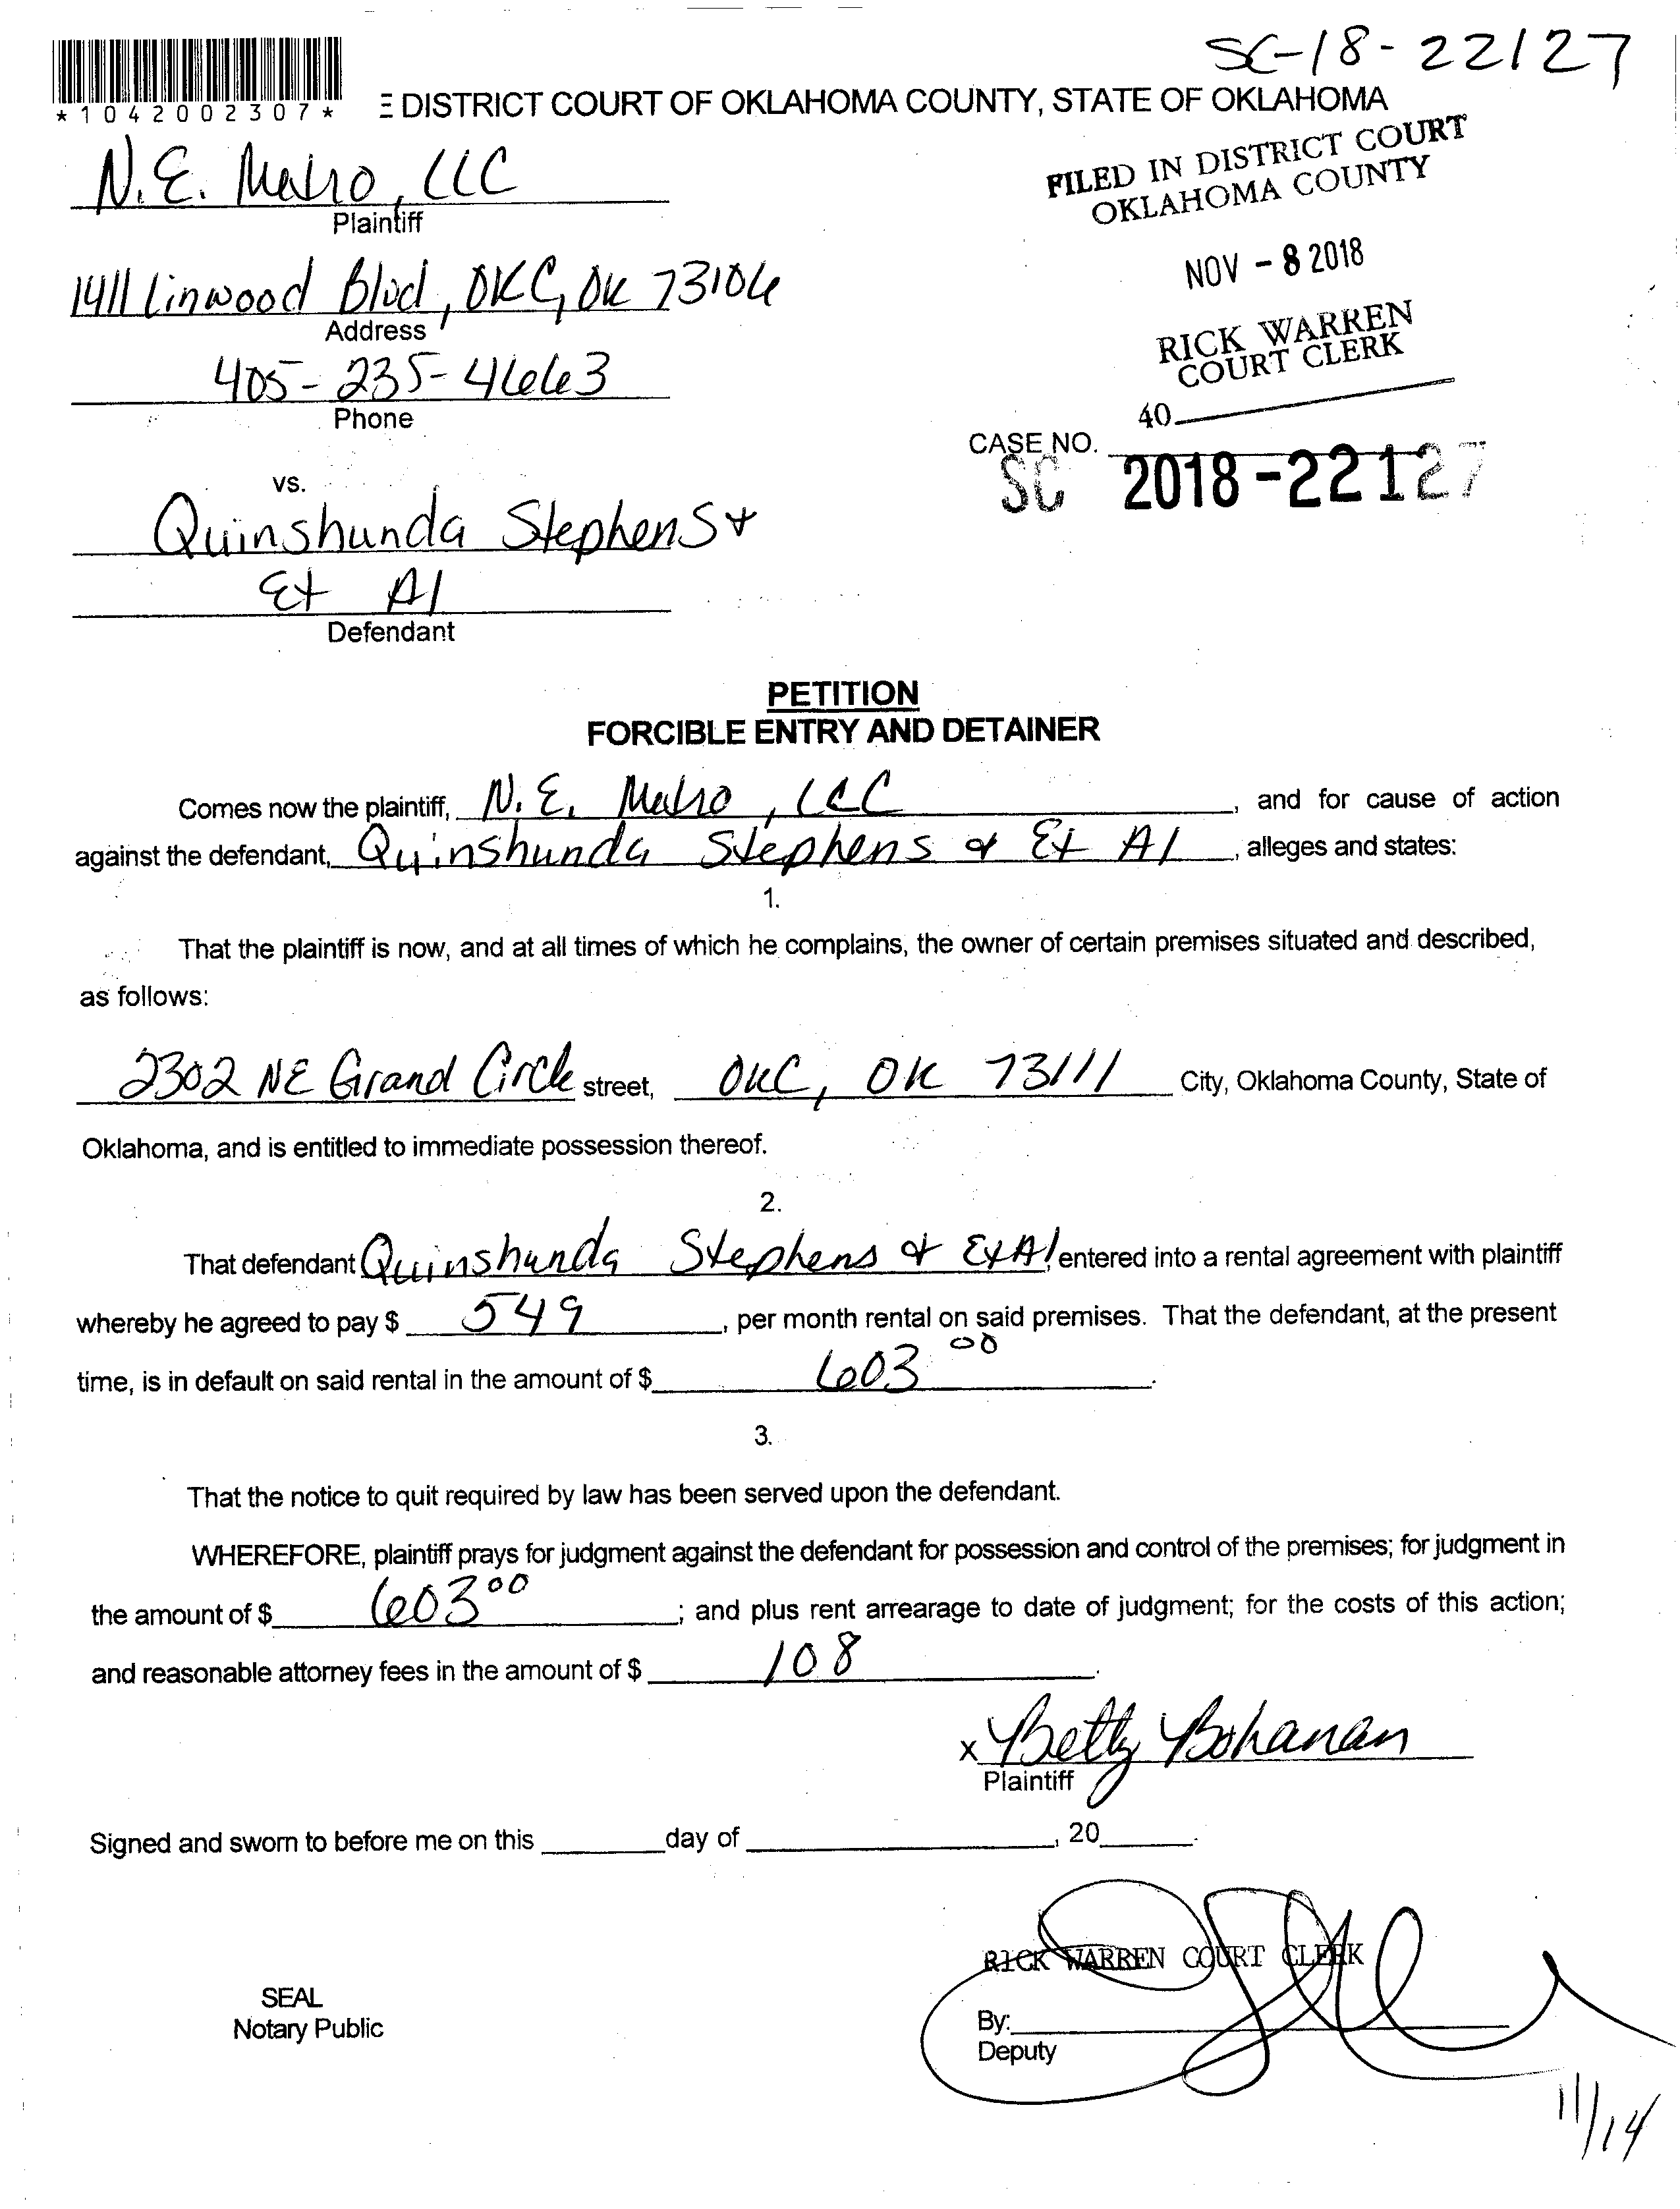 SC-18-22127
*10420002307*
E DISTRICT COURT OF OKLAHOMA COUNTY, STATE OF OKLAHOMA
N.E. Metro, LLC
Plaintiff
FILED IN DISTRICT COURT
OKLAHOMA COUNTY
1411 Linwood Blvd, OKC, OK 73106
Address
NOV - 8 2018
405-235-4663
Phone
RICK WARREN
COURT CLERK
40
CASE NO.
SC 2018-22127
vs.
Quinshunda Stephens &
Et Al
Defendant
PETITION
FORCIBLE ENTRY AND DETAINER
Comes now the plaintiff, N.E. Metro, LLC, and for cause of action
against the defendant, Quinshunda Stephens & Et Al, alleges and states:
1.
That the plaintiff is now, and at all times of which he complains, the owner of certain premises situated and described,
as follows:
2302 NE Grand Circle street, OKC, OK 73111 City, Oklahoma County, State of
Oklahoma, and is entitled to immediate possession thereof.
2.
That defendant Quinshunda Stephens & Et Al, entered into a rental agreement with plaintiff
whereby he agreed to pay $ 549, per month rental on said premises. That the defendant, at the present
time, is in default on said rental in the amount of $ 603 00.
3.
That the notice to quit required by law has been served upon the defendant.
WHEREFORE, plaintiff prays for judgment against the defendant for possession and control of the premises; for judgment in
the amount of $ 603 00; and plus rent arrearage to date of judgment; for the costs of this action;
and reasonable attorney fees in the amount of $ 108.
x Betty Bohanan
Plaintiff
Signed and sworn to before me on this ______ day of ______, 20____.
RICK WARREN COURT CLERK
SEAL
Notary Public
By:
Deputy
11/14